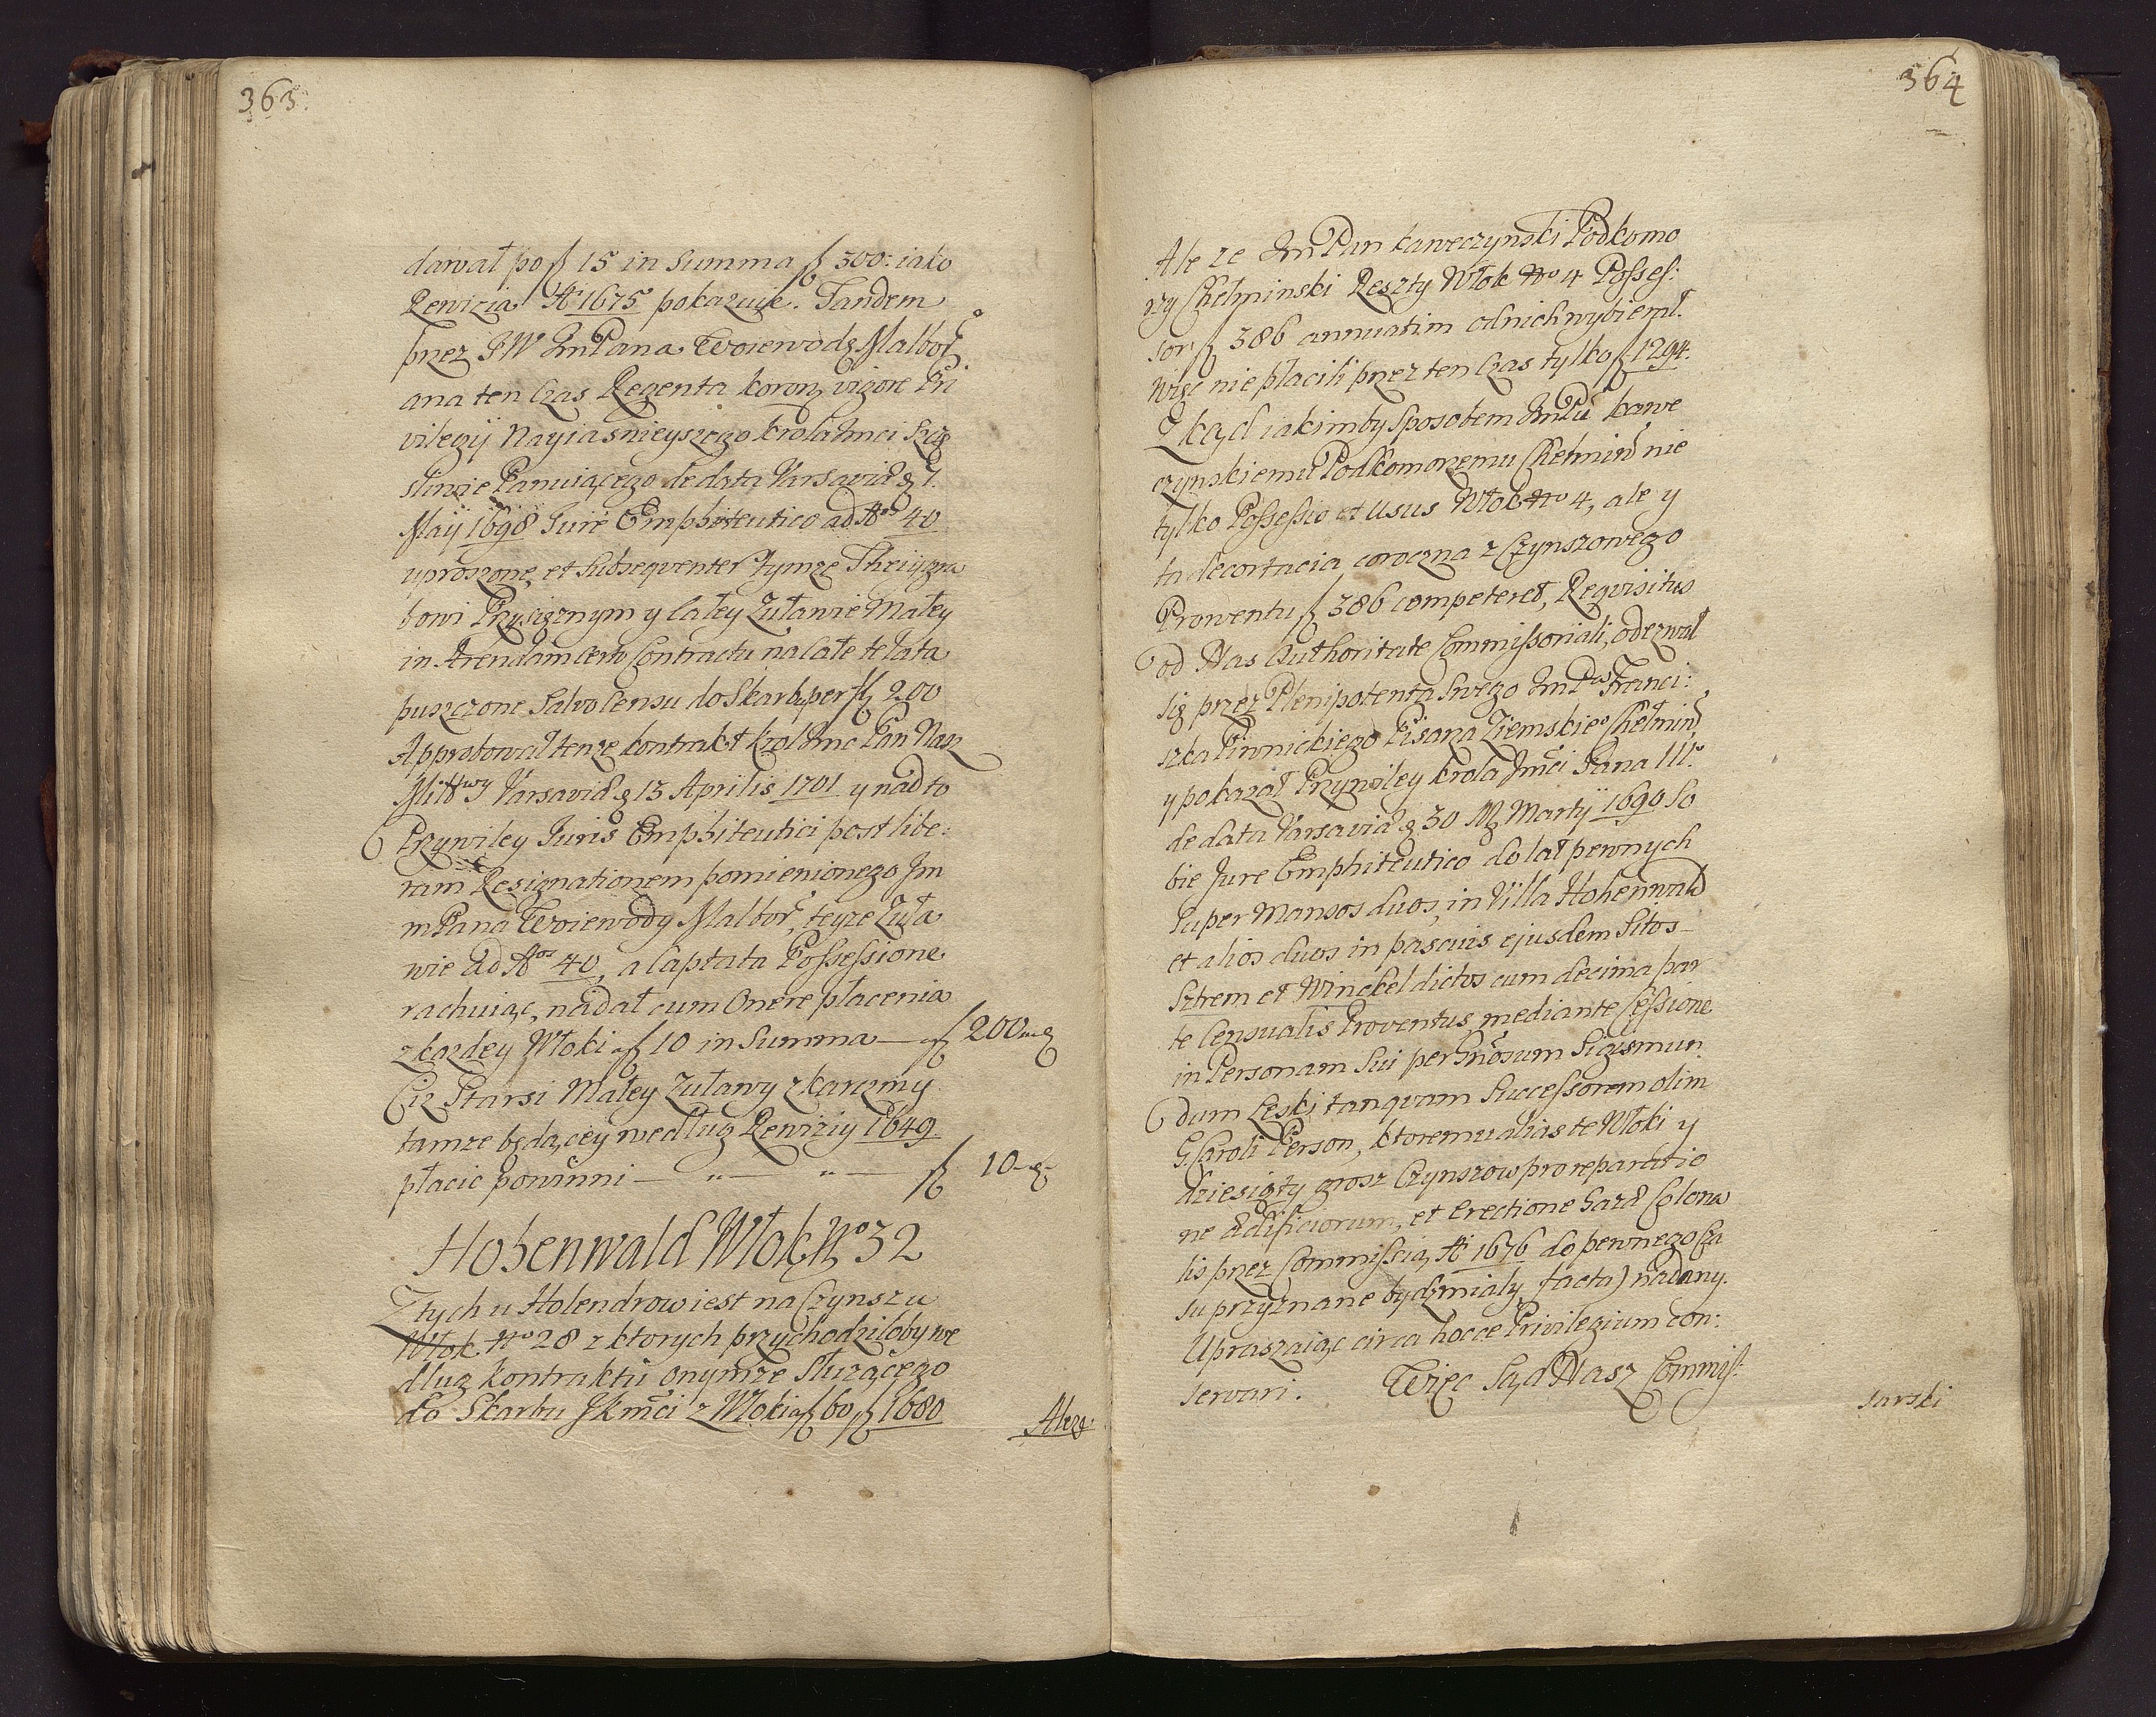 363.
dawał po f 15 in Summa f 300: iako
Rewizia A° 1675 pokazuie. Tandem
przez JW ImPana Woiewodę Malborº
ana ten czas Regenta koron. vigore Pri
vilegij Nayiasnieyszego Krola Imci Szczę
sliwie Panuiącego de data Varsaviæ d 7
Maij 1698 Jure Emphiteutico ad Aºs 40
uproszone, et Subsequenter tymze
bowi Przysięznym y całey Zuławie Małey
in Arendam certo Contractu na całe te lata
puszczone Salvo Censu do Skarbu per f 200
Approbował tenze kontrakt Krol Imc Pan Nasz
Miłłwy Varsaviæ d 13 Aprilis 1701 y nad to
Przywiley Juris Emphiteutici post libe:
ram Resignationem pomienionego Jm
mPana Woiewody Malbor, teyze Zuła
wie ad Aºs 40, a captata Possessione
rachuiąc, nadał cum Onere płacenia
z kozdey Włoki a f 10 in Summa — f 200
Ciz Starsi Małey Zuławy z karczmy
tamze będącey według Rewiziy 1649
płacic powinni — " — " — f 10
Hohenwald Włok Nº 32
Z tych u Holendrow iest na Czynszu
Włok Nº 28 z ktorych przychodziłoby we
dług kontraktu onymze Słuzącego
do Skarbu JKmci z Włoki a f 60 f 1680
Ale ze
364
Ale ze ImPan kaweczynski Podkomo
rzy Chełminski Reszty Włok Nº 4 Posses:
sor f 386 annuatim od nich wybierał
Więc nie płacili przez ten czas tylko f 1294.
Zkąd iakimby Sposobem ImPu kawe
czynskiemu Podkomorzemu Chełmin nie
tylko Possessio et Usus Włok Nº 4, ale y
ta decortacia coroczna z Czynszowego
Prowentu f 386 competeret, Requisitus
od Nas Authoritate Commissoriali, odezwał
się przez Plenipotenta Swego ImPa Franci:
szka Piwnickiego Pisarza Ziemskieº Chełmin
y pokazał Przywiley Krola Jmci Jana III
de data Varsaviæ d 30 M Martij 1690 So
bie Jure Emphiteutico do lat pewnych
Super Mansos duos, in Villa Hohenwald
et alios duos in pascuis ejusdem Sitos
Sztrem et Winckel dictos cum decima par
te Censualis Proventus mediante Cessione
in Personam Sui per Gnosum Sigismun
dum Leski tanquam Successorem olim
G. Caroli Person, ktoremu alias te Włoki y
dziesiąty grosz Czynszow pro reparatio
ne Ædificiorum, et Erectione
lis przez Commissią Aº 1676 do pewnego Cza
su przyznane bydz miały facta) nadany.
Upraszaiąc circa hocce Privilegium con:
servari. Więc Sąd Nasz Commis:
sarski